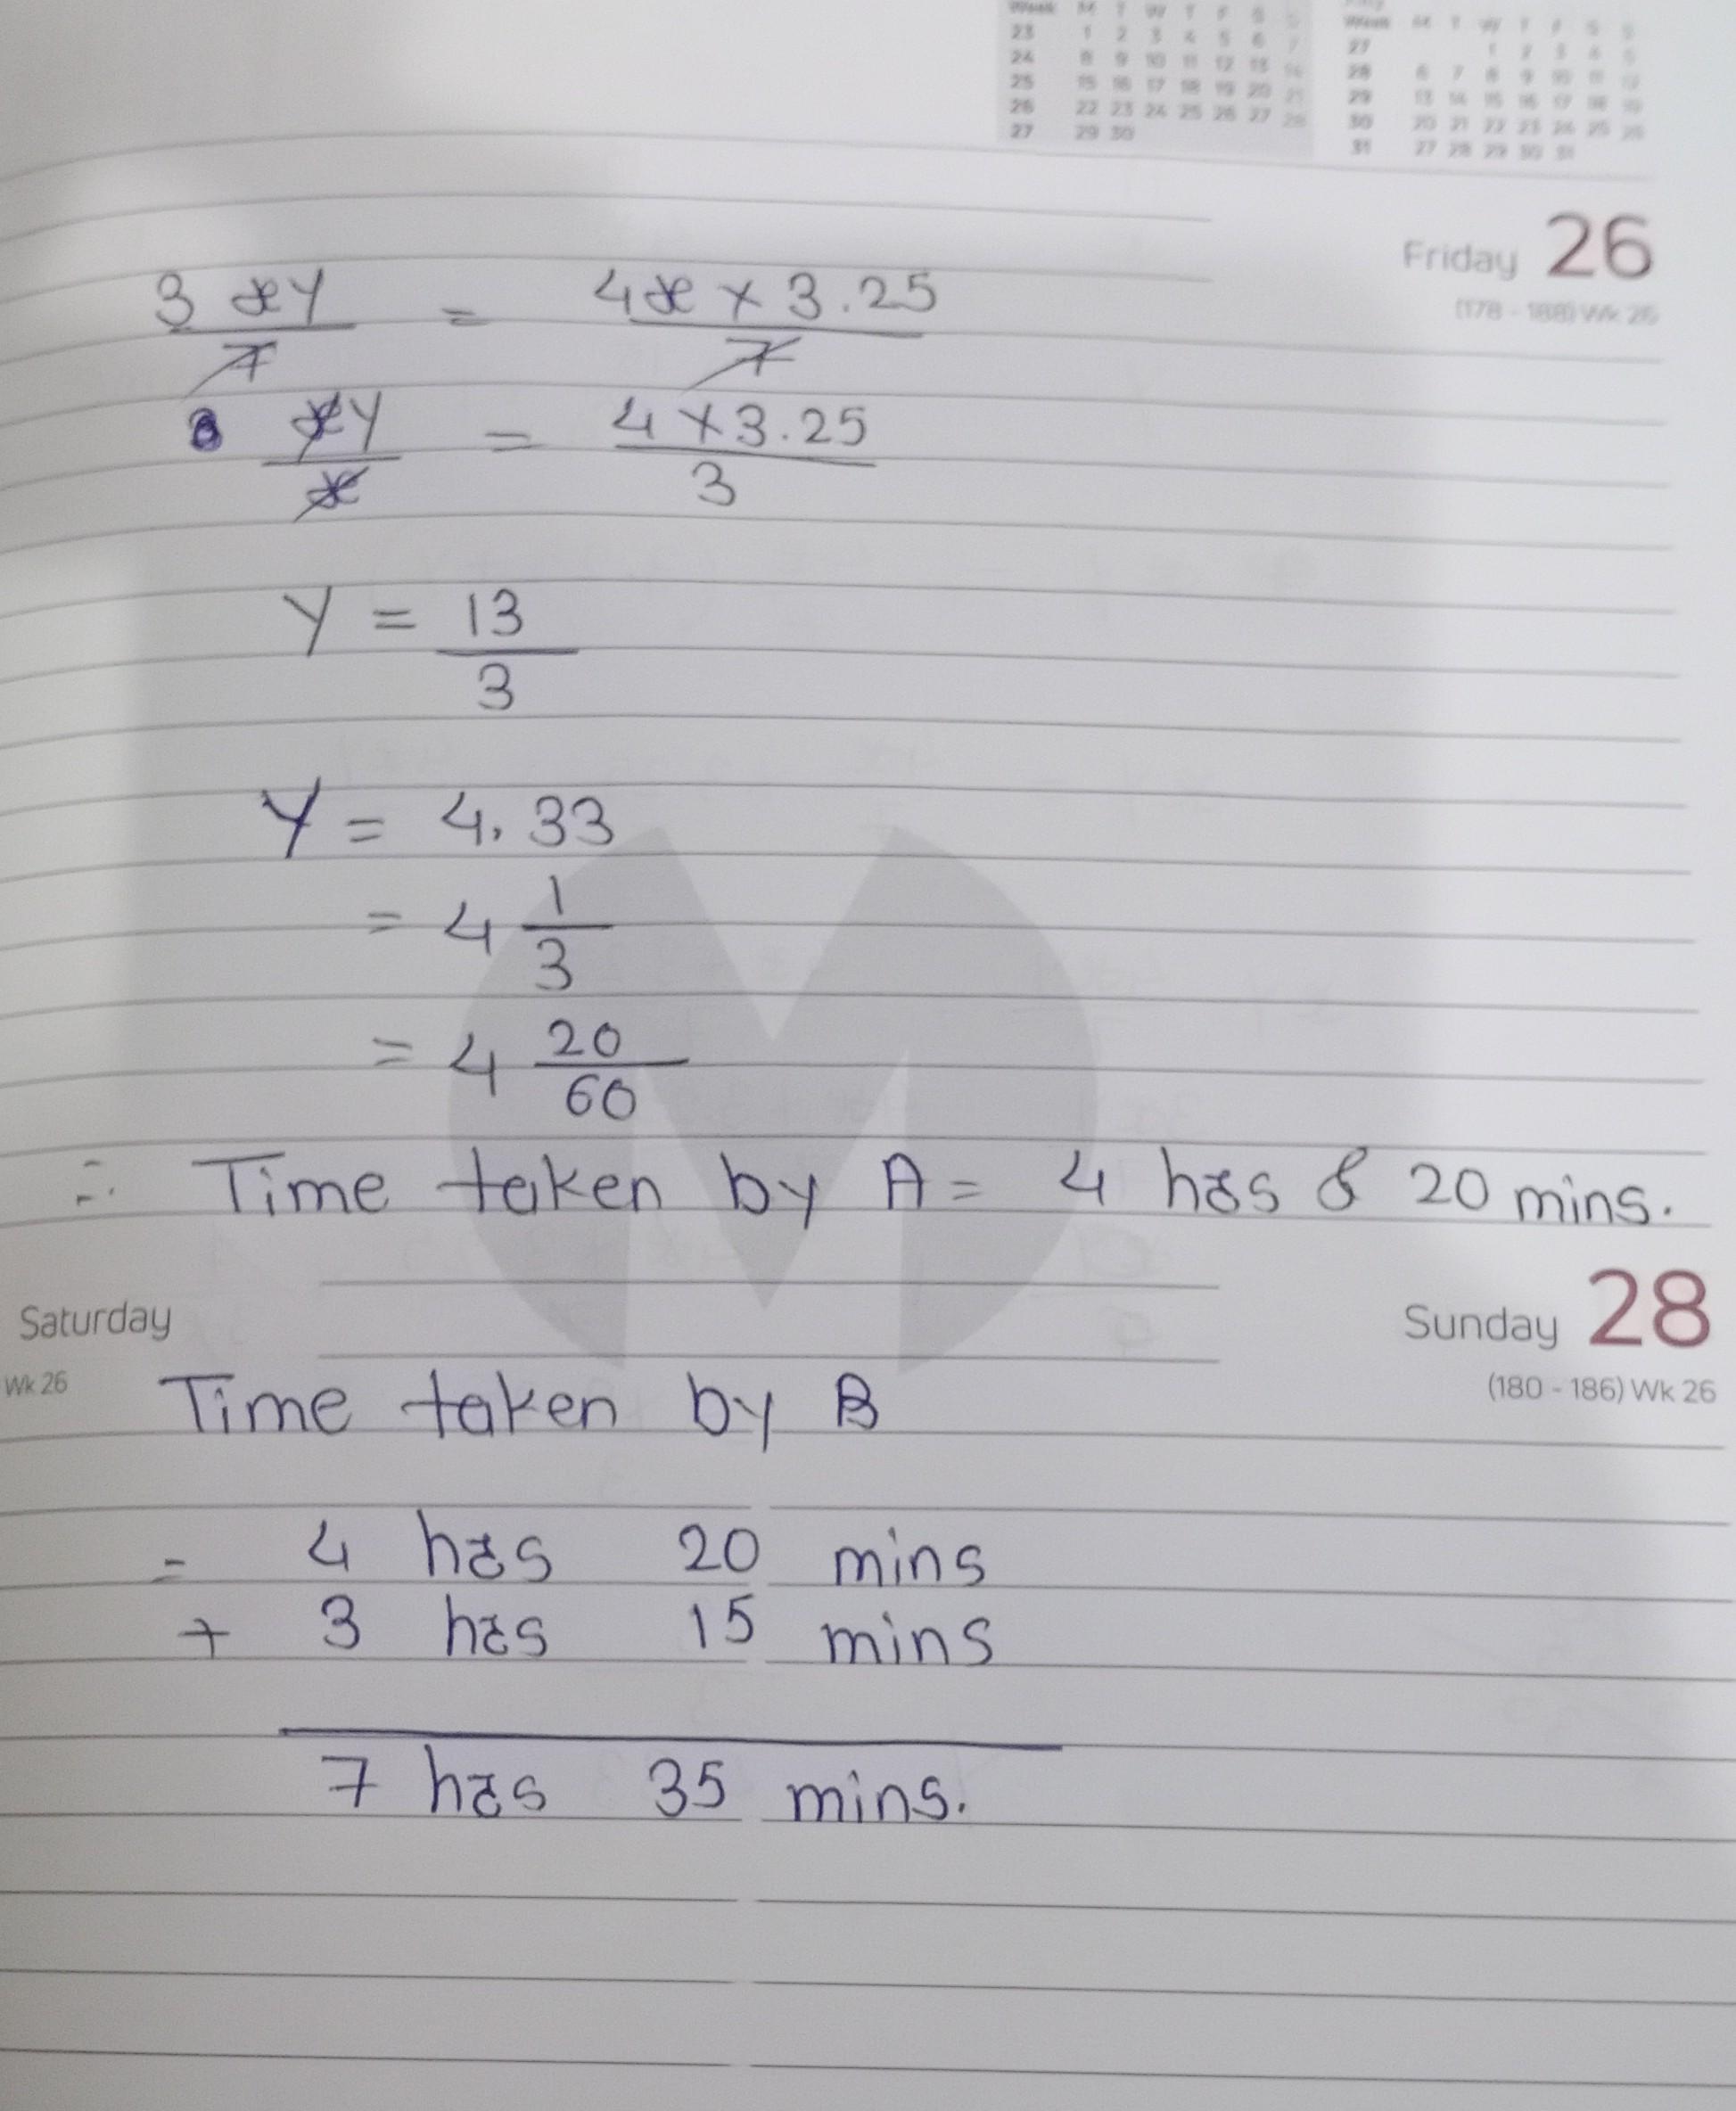 Week M T W T F S S
23 1 2 3 4 5 6 7
24 8 9 10 11 12 13 14
25 15 16 17 18 19 20 21
26 22 23 24 25 26 27 28
27 29 30
Week M T W T F S S
27 1 2 3 4 5
28 6 7 8 9 10 11 12
29 13 14 15 16 17 18 19
30 20 21 22 23 24 25 26
31 27 28 29 30 31
Friday 26
(178 - 188) Wk 26
3 xy = 4x × 3.25
7 7
xy = 4 × 3.25
x 3
Y = 13
3
Y = 4.33
= 4 1
3
= 4 20
60
∴ Time taken by A = 4 hrs & 20 mins.
Saturday
Wk 26
Sunday 28
(180 - 186) Wk 26
Time taken by B
= 4 hrs 20 mins
+ 3 hrs 15 mins
7 hrs 35 mins.